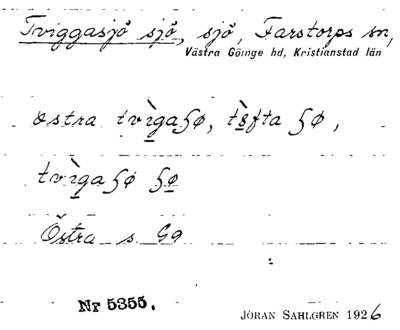 Tviggasjö sjö, sjö, Farstorps sn,
Västra Göinge hd, Kristianstad län
östra tvìgaʃø,
ʃø,
tvìgaʃø ʃø
Östra s. Gg
Nr 5355.
JÖRAN SAHLGREN 1926